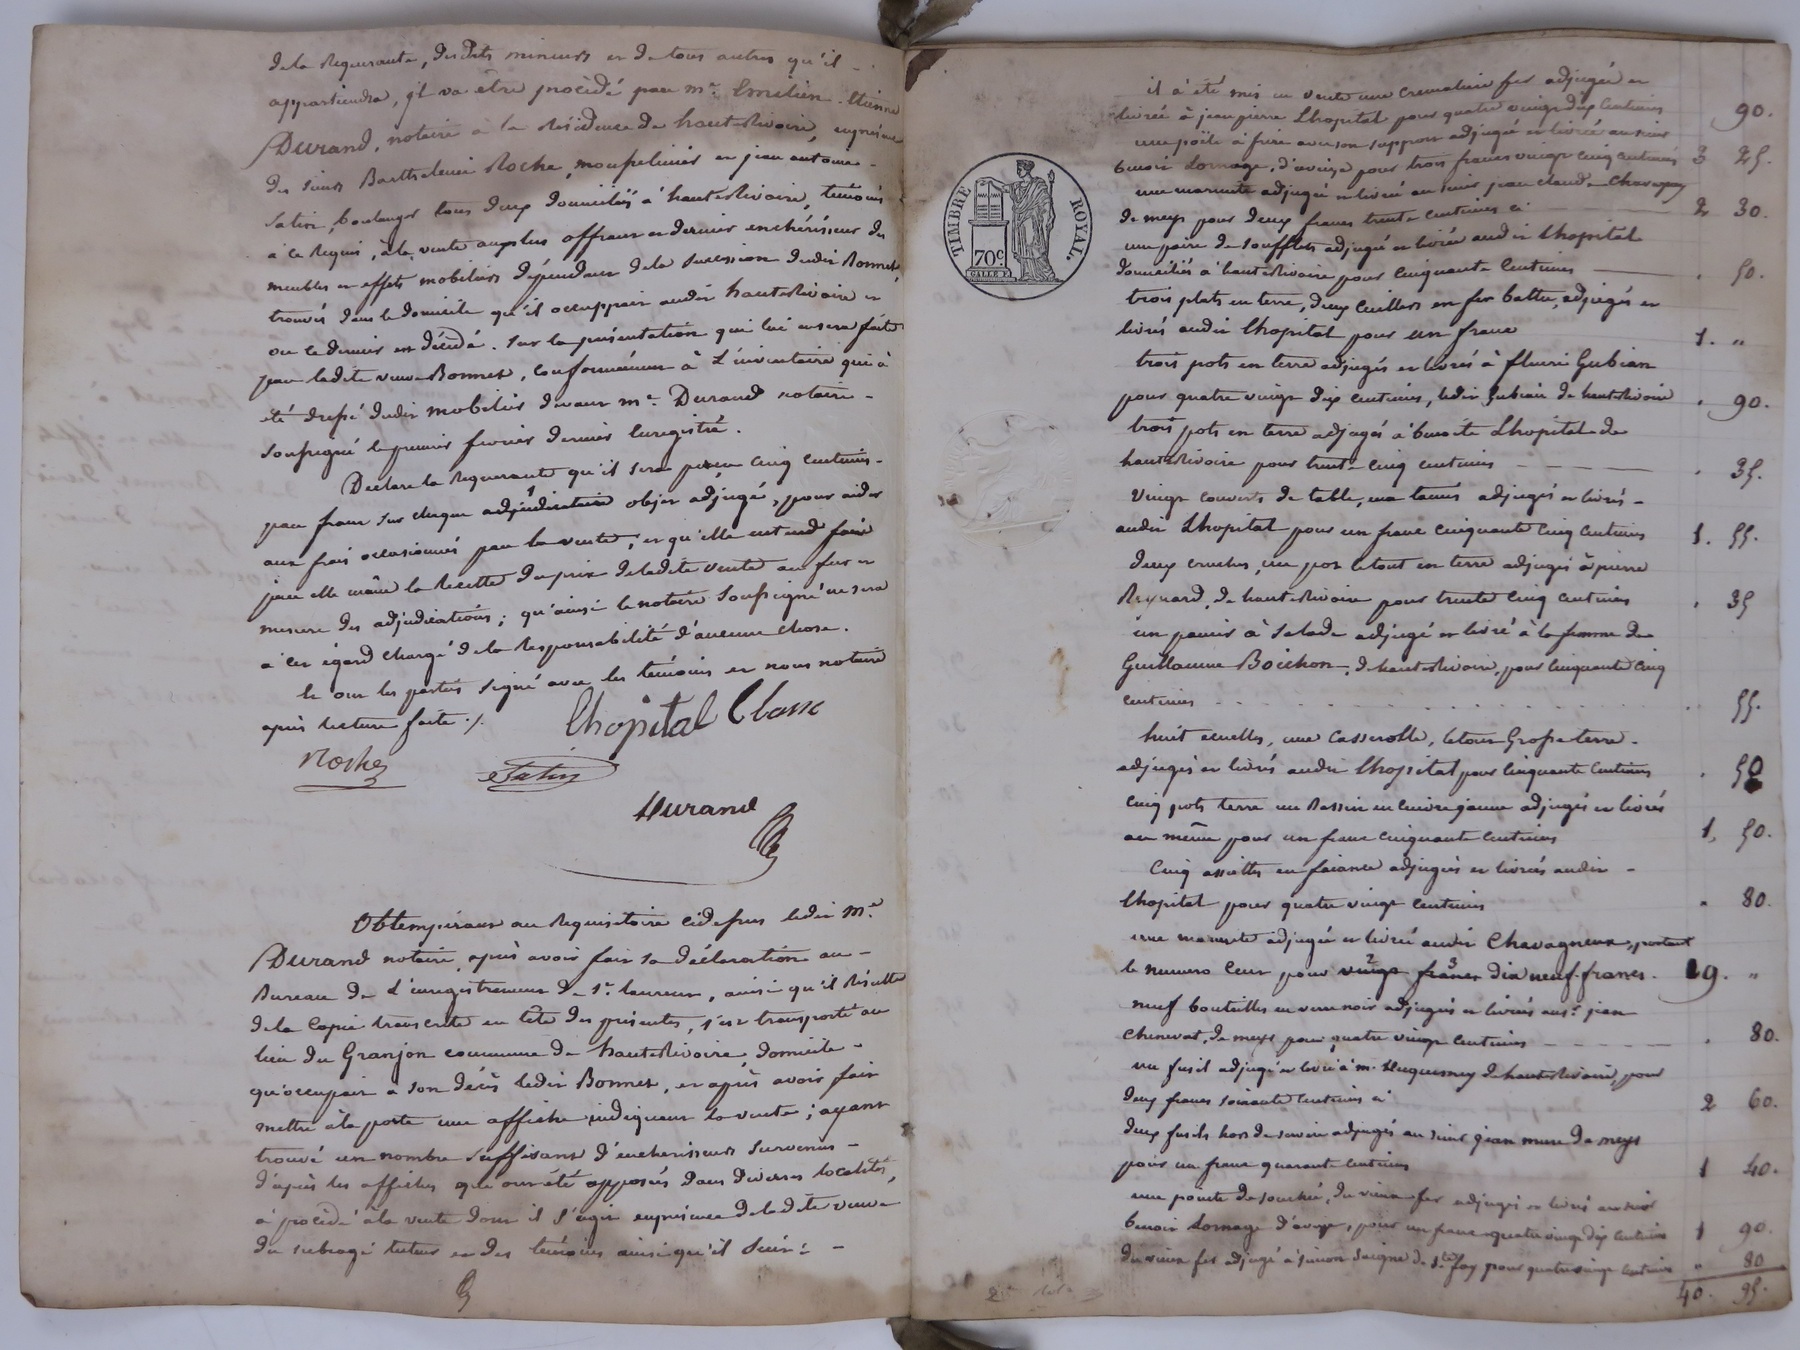 de la Requerante, desdits mineurs et de tous autres qu'il
appartiendra, il va être procédé par me. Emilien Etienne
Durand, notaire à la Résidence de hauterivoire, en présence
des sieurs Barthelemi Roche, et jean antoine
Satin, boulanger tous deux domiciliés à hauterivoire, témoins
à ce Requis, à la vente au plus offrant et dernier enchérisseur des
meubles et effets mobiliers dépendant de la succession dudit Bonnet,
trouvés dans le domicile qu'il occuppait audit hauterivoire et
ou ce dernier est décédé. Sur la présentation qui lui en sera faite
par ladite veuve Bonnet, conformément à L'inventaire qui a
été dressé dudit mobilier devant me. Durand notaire
soussigné le premier fevrier dernier Enregistré.
Declare la Requerante qu'il sera perçu cinq centimes
par franc sur chaque objet adjugé, pour aider
aux frais occasionnés par la vente; et qu'elle entend faire
par elle même la Recette du prix de ladite vente au fur et
mesure des adjudications; qu'ainsi le notaire soussigné ne sera
à cet égard chargé de la Responsabilité d'aucune chose.
Et ont les parties signé avec les témoins et nous notaire
après lecture faite ./.
Lhopital Blanc
Roche Satin
Durand
Obtempérant au Requisitoire cidessus ledit Me.
Durand notaire, après avoir fait sa déclaration au
Bureau de L'enregistrement de St. laurent, ainsi qu'il Résulte
de la Copie transcrite en tête des présentes, s'est transporté au
lieu du Granjon commune de hauterivoire, domicile
qu'occupait à son décès ledit Bonnet, et après avoir fait
mettre à la porte une affiche indiquant la vente; ayant
trouvé un nombre suffisant d'encherisseurs survenus
d'après les affiches qui ont été apposés dans diverses localités,
à procédé à la vente dont il s'agit en présence de ladite veuve
du subrogé tuteur et des témoins ainsi qu'il suit:
TIMBRE ROYAL.
70c
il à été mis en vente une cremaliere fer adjugée et
livrée à jean pierre Lhopital pour quatre vingt dix centimes 90.
une poële à frire avec son support adjugé et livrée au sieur
benoit Lornage, d'aveize pour trois francs vingt cinq centimes 3 25.
une marmite adjugé et livré au sieur jean claude
de meys pour deux francs trente centimes ci 2 30.
une paire de soufflets adjugé et livré audit Lhopital
domiciliés à hauterivoire pour cinquante centimes . 50.
trois plats en terre, deux cuillers en fer battu, adjugés et
livrés audit Lhopital pour un franc 1. "
trois pots en terre adjugés et livrés à fleuri Gubian
pour quatre vingt dix centimes, ledit Gubian de hauterivoire . 90.
trois pots en terre adjugés à benoite Lhopital de
hauterivoire pour trente cinq centimes . 35.
vingt couverts de table, un tamis adjugés et livrés
audit Lhopital pour un franc cinquante cinq centimes 1. 55.
deux cruches, un pot le tout en terre adjugés à pierre
Reynard, de hauterivoire pour trente cinq centimes . 35
un panier à salade adjugé et livré à la femme de
Guillaume Boichon, de hauterivoire, pour cinquante cinq
centimes . 55.
huit ecuelles, une casserolle, le tout Grosse terre
adjugés et livrés audit Lhopital pour cinquante centimes . 50
cinq pots terre un Bassin en cuivre jaune adjugés et livrés
au même pour un franc cinquante centimes 1, 50.
Cinq assiettes en faiance adjugés et livrés audit
Lhopital pour quatre vingt centimes " 80.
une marmite adjugée et livrée audit Chavagneux, portant
le numero cent pour vingt francs dix neuf francs. 19. "
neuf bouteilles en verre noir adjugés et livrés au sr. jean
Chenevat, de meys pour quatre vingt centimes . 80.
un fusil adjugé et livré à mr. Duquesnoy de hauterivoire, pour
deux francs soixante centimes ci 2 60.
deux fusils hors de service adjugés au sieur jean mure de meys
pour un franc quarante centimes 1 40.
une pointe de, du vieux fer adjugés et livrés au sieur
benoit Lornage d'aveize, pour un franc quatre vingt dix centimes 1 90.
du vieux fer adjugé à simon de Ste foy pour quatre vingt centimes " 80
40. 95.